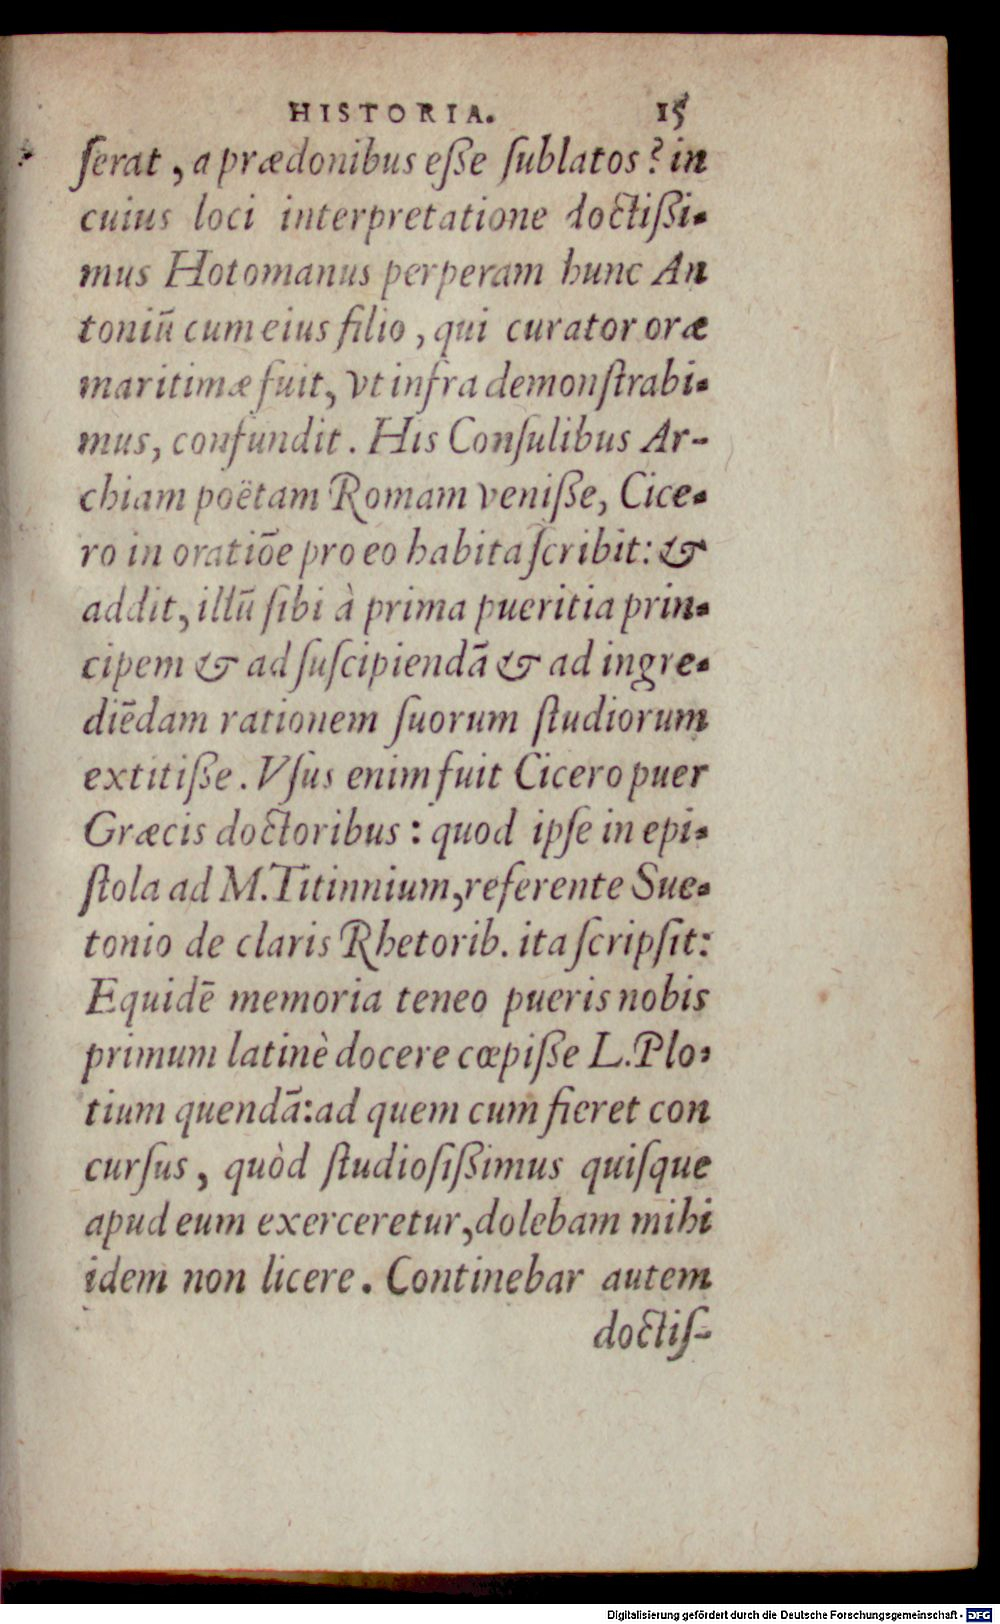 HISTORIA. 15
ſerat, a prædonibus eſſe ſublatos? in
cuius loci interpretatione doctißi-
mus Hotomanus perperam hunc An
toniū cum eius filio, qui curator oræ
maritimæ fuit, vt infra demonſtrabi-
mus, confundit. His Conſulibus Ar-
chiam poëtam Romam veniße, Cice-
ro in oratiōe pro eo habita ſcribit: &
addit, illū ſibi à prima pueritia prin-
cipem & ad ſuſcipiendā & ad ingre-
diēdam rationem ſuorum ſtudiorum
extitiße. Vſus enim fuit Cicero puer
Græcis doctoribus: quod ipſe in epi-
ſtola ad M. Titinnium, referente Sue-
tonio de claris Rhetorib. ita ſcripſit:
Equidē memoria teneo pueris nobis
primum latinè docere cœpiße L. Plo-
tium quendā: ad quem cum fieret con
curſus, quòd ſtudioſißimus quiſque
apud eum exerceretur, dolebam mihi
idem non licere. Continebar autem
doctiſ-
Digitalisierung gefördert durch die Deutsche Forschungsgemeinschaft - DFG